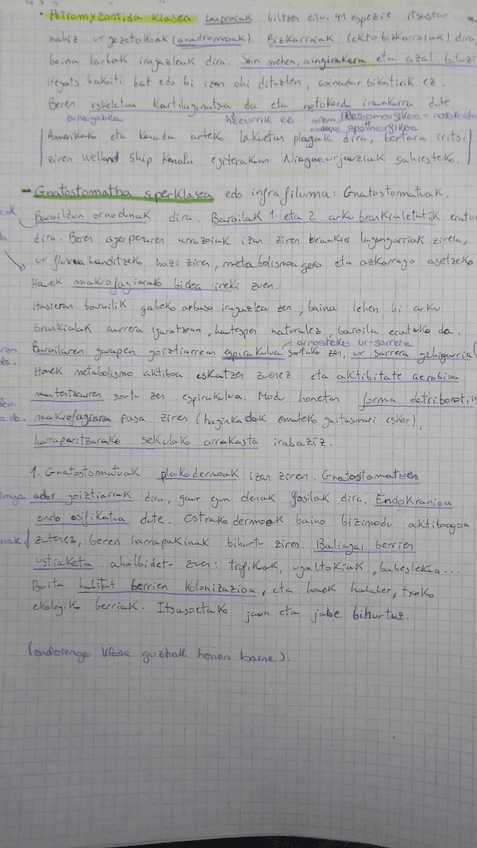 · Petromyzontida klasea Lanproiak biltzen ditu, 41 espezie itsastar
nahiz ur gezetakoak (anadromoak). Bizkarroiak (ekto bizkarroiak) dira,
baina larbak iragazleak dira. Soin mehea, aingirakara eta azal biluzi
Hegats bakoiti bat edo bi izan ohi dituzten, bikoitirik ez.
Beren eskeletoa kartilaginotsua da eta notokorda iraunkorra dute.
hezurrik ez
Amerikako eta Kanada arteko lakuetan plagak dira, bertara iritsi
ziren welland ship kanala egiterakoan Niagara urjauziak saihesteko.
- Gnatostomatha superklasea edo infrafiluma: Gnatostomatuak.
Baraildun ornodunak dira. Barailak 1. eta 2. arku brankialetatik
dira. Beren agerpenaren arrazoiak izan ziren brankia lagungarriak zirela,
ur fluxua handitzeko hazi ziren, metabolismo eta azkarrago
Hauek makrofagiarako bidea ireki zuen.
Hasieran barailik gabeko iragazlea zen, baina lehen bi arku
brankialak aurrera igarotzean, hautespen naturalez, baraila eratuko da.
arnasteko ur-sarrera
Barailaren garapen goiztiarrean espirakulua sortuko zen, ur sarrera gehigarria
Honek metabolismo aktiboa eskatzen zuenez eta aktibitate aerobioa
mantentzearren sortu zen espirakulua. Modu honetan forma detriborotik
makrofagiara pasa ziren (haginkadak emateko gaitasunari esker),
harraparitzarako sekulako arrakasta irabaziz.
1. Gnatostomatuak plakodermoak izan ziren. Gnatostomatuen
adar goiztiarrak dira, gaur egun denak fosilak dira. Endokranioa
ondo osifikatua dute. Ostrakodermoak baino bizimodu aktiboagoa
zutenez, beren harrapakinak bihurtu ziren. Baliabide berrien
ustiaketa ahalbidetu zuen: trofikoak, ugaltokiak, babeslekua...
Baita habitat berrien kolonizazioa, eta honek halaber, txoko
ekologiko berriak. Itsasoetako jaun eta jabe bihurtuz.
(ondorengo klase guztiak hemen barne).